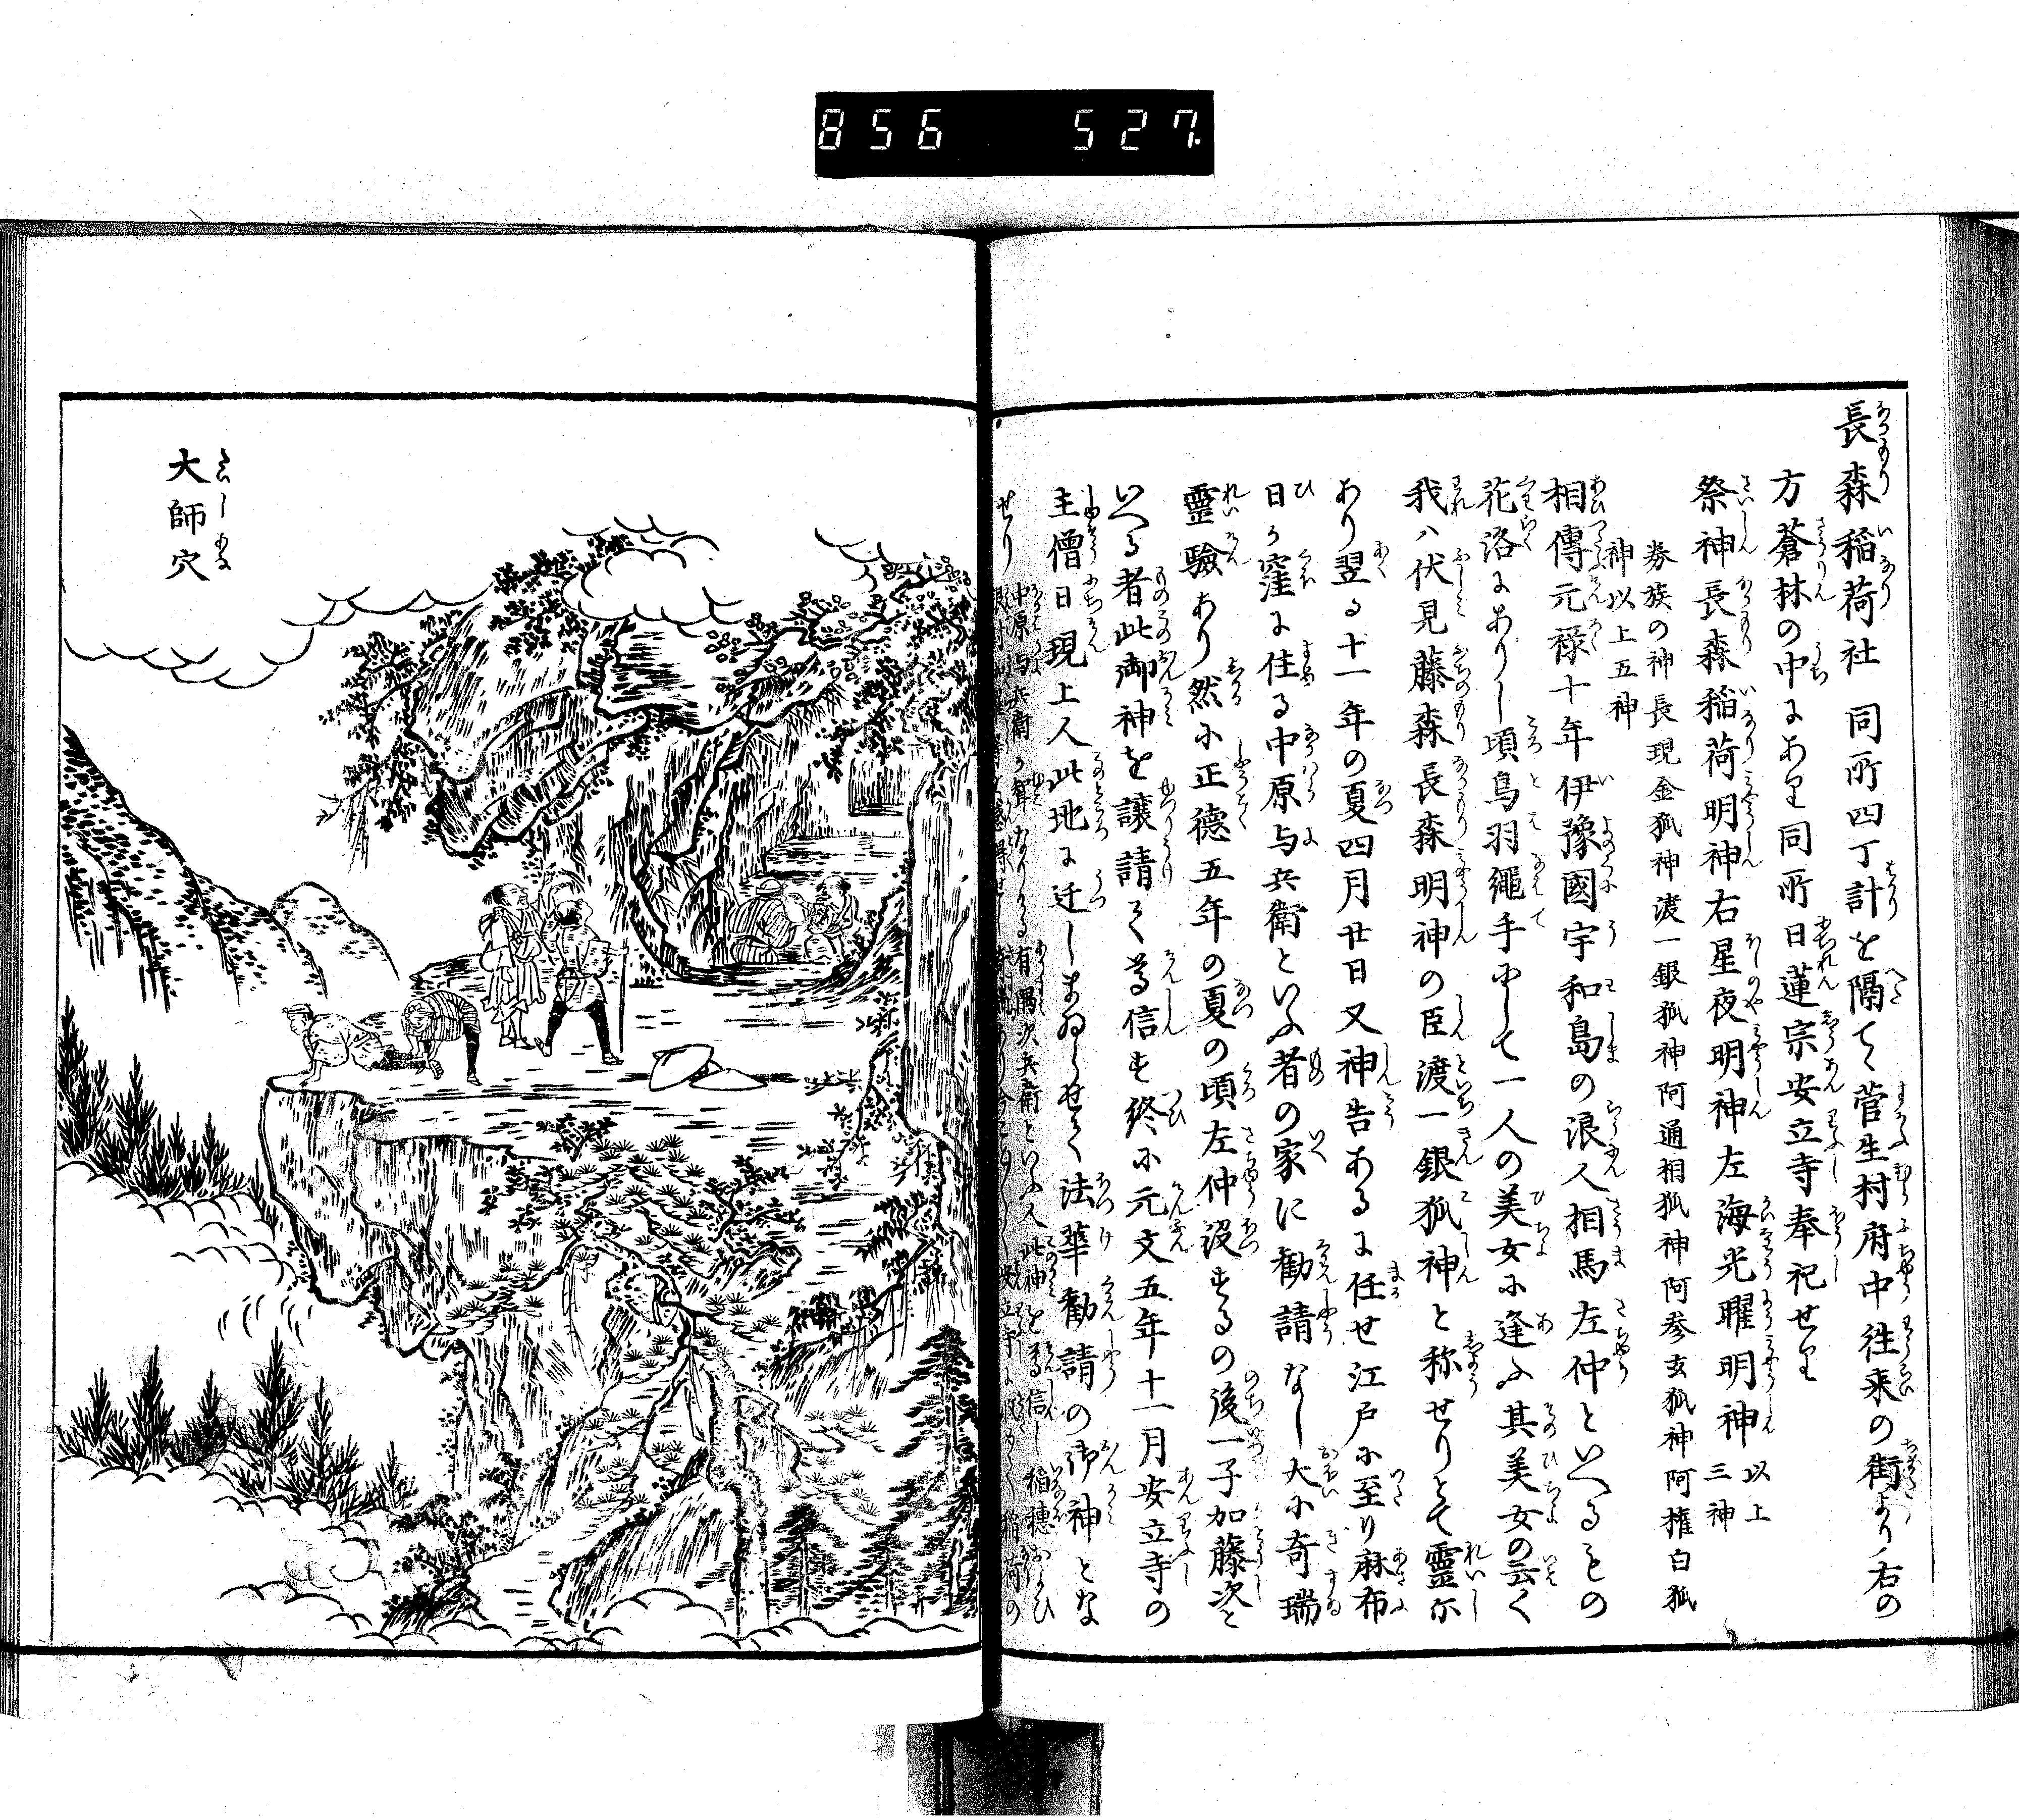 856 527.
長森稲荷社 同所四丁計を隔てゝ菅生村府中徃来の街より右の
方蒼林の中にあり同所日蓮宗安立寺奉祀せり
祭神長森稲荷明神右星夜明神左海光曜明神以上三神
劵族の神長現金狐神渡一銀狐神阿通相狐神阿参玄狐神阿権白狐
神以上五神
相傳元禄十年伊豫國宇和島の浪人相馬左仲といへるもの
花洛にありし頃鳥羽縄手にして一人の美女に逢ふ其美女の云く
我ハ伏見藤森長森明神の臣渡一銀狐神と称せりとて靈示
あり翌る十一年の夏四月廿日又神告あるに任せ江戸に至り麻布
日か窪に住る中原与兵衛といふ者の家に勧請なし大に奇瑞
靈驗あり然に正徳五年の夏の頃左仲没するの後一子加藤次と
いへる者此御神を譲請て尊信す終に元文五年十一月安立寺の
主僧日現上人此地に迁しまゐらせて法華勸請の御神とな
せり
中原与兵衛か聟なりける有隅次兵衛といふ人此神を尊信し稲穂およひ
大師穴